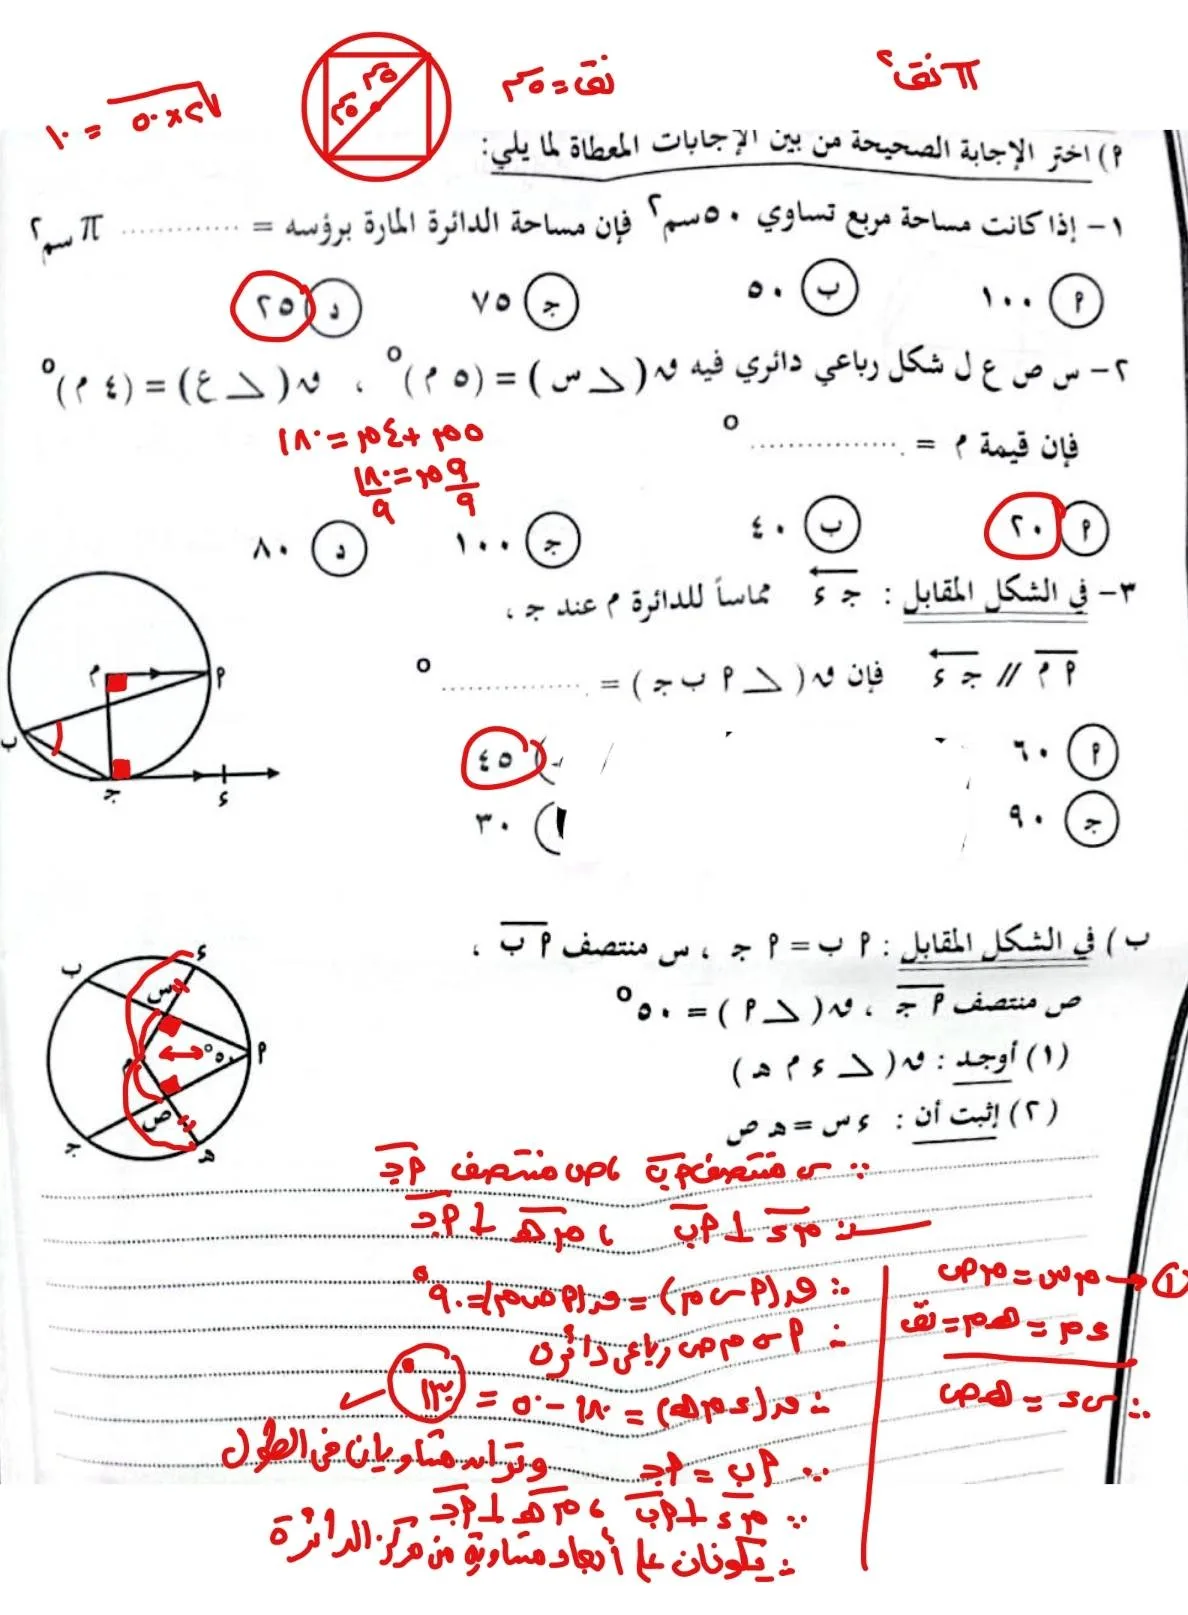 π نق²
نق = ٥م
٥م ٥م
√٢×٥٠ = ١٠
م) اختر الإجابة الصحيحة من بين الإجابات المعطاة لما يلي:
١- إذا كانت مساحة مربع تساوي ٥٠ سم² فإن مساحة الدائرة المارة برؤسه = ............ π سم²
م ١٠٠ ب ٥٠ ج ٧٥ د ٢٥
٢- س ص ع ل شكل رباعي دائري فيه ق(ح س) = (٥ م)° ، ق(ح ع) = (٤ م)°
فإن قيمة م = ................ °
٥م + ٤م = ١٨٠
٩م/٩ = ١٨٠/٩
م ٢٠ ب ٤٠ ج ١٠٠ د ٨٠
٣- في الشكل المقابل : ج ء مماساً للدائرة م عند ج ،
م م // ج ء فإن ق(ح م ب ج) = ................ °
م ٦٠ ٤٥
ج ٩٠ ٣٠
م م ب ج ء
ب) في الشكل المقابل : م ب = م ج ، س منتصف م ب ،
ص منتصف م ج ، ق(ح م) = ٥٠°
(١) أوجد : ق(ح ء م هـ)
(٢) إثبت أن : ء س = هـ ص
ء ب س م ٥٠° م ص ج هـ
∵ س منتصف م ب ، ص منتصف م ج
∴ م ء ⊥ م ب ، م هـ ⊥ م ج
∴ ق(م س م) = ق(م ص م) = ٩٠°
∴ م س م ص رباعي دائري
∴ ق(ء م هـ) = ١٨٠ - ٥٠ = ١٣٠°
∵ م ب = م ج وتران متساويان في الطول
∵ م ء ⊥ م ب ، م هـ ⊥ م ج
∴ يكونان على أبعاد متساوية من مركز الدائرة
① ← م س = م ص
ء م = هـ م = نق
∴ س ء = هـ ص